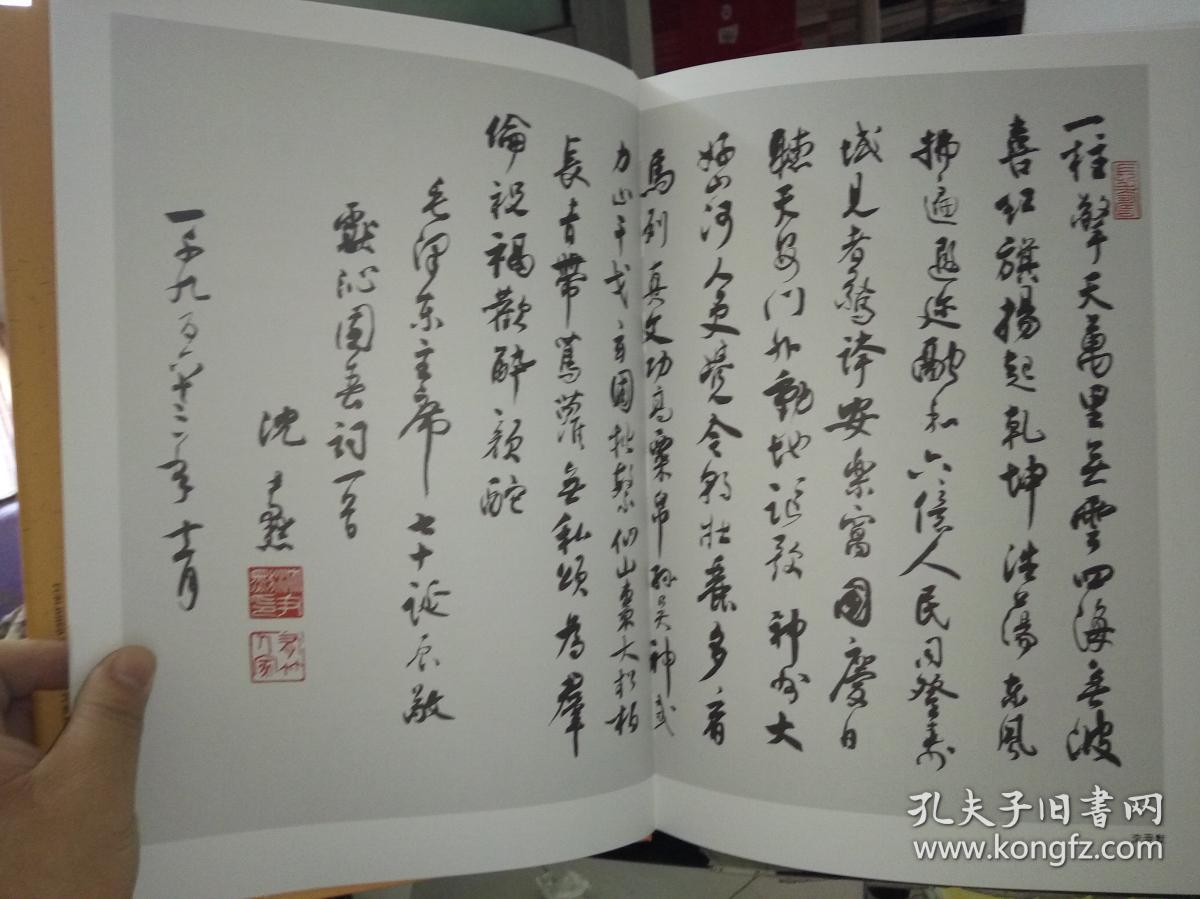 一柱擎天萬里無雲四海無波
喜紅旗揚起乾坤浩蕩東風
拂遍遐迩融和六億人民同登壽
域見者驚誇安樂窩國慶日
聽天安門外動地謳歌神州大
好山河人更覺今朝壯麗多看
馬列真文功高粟帛孫吳神武
力止干戈 仙山 大松柏
長青帶蔦蘿無私頌為羣
倫祝福歡醉顏酡
毛澤东主席七十誕辰敬
獻沁園春詞一首
沈尹默
一千九百六十三年 月
孔夫子旧书网
www.kongfz.com